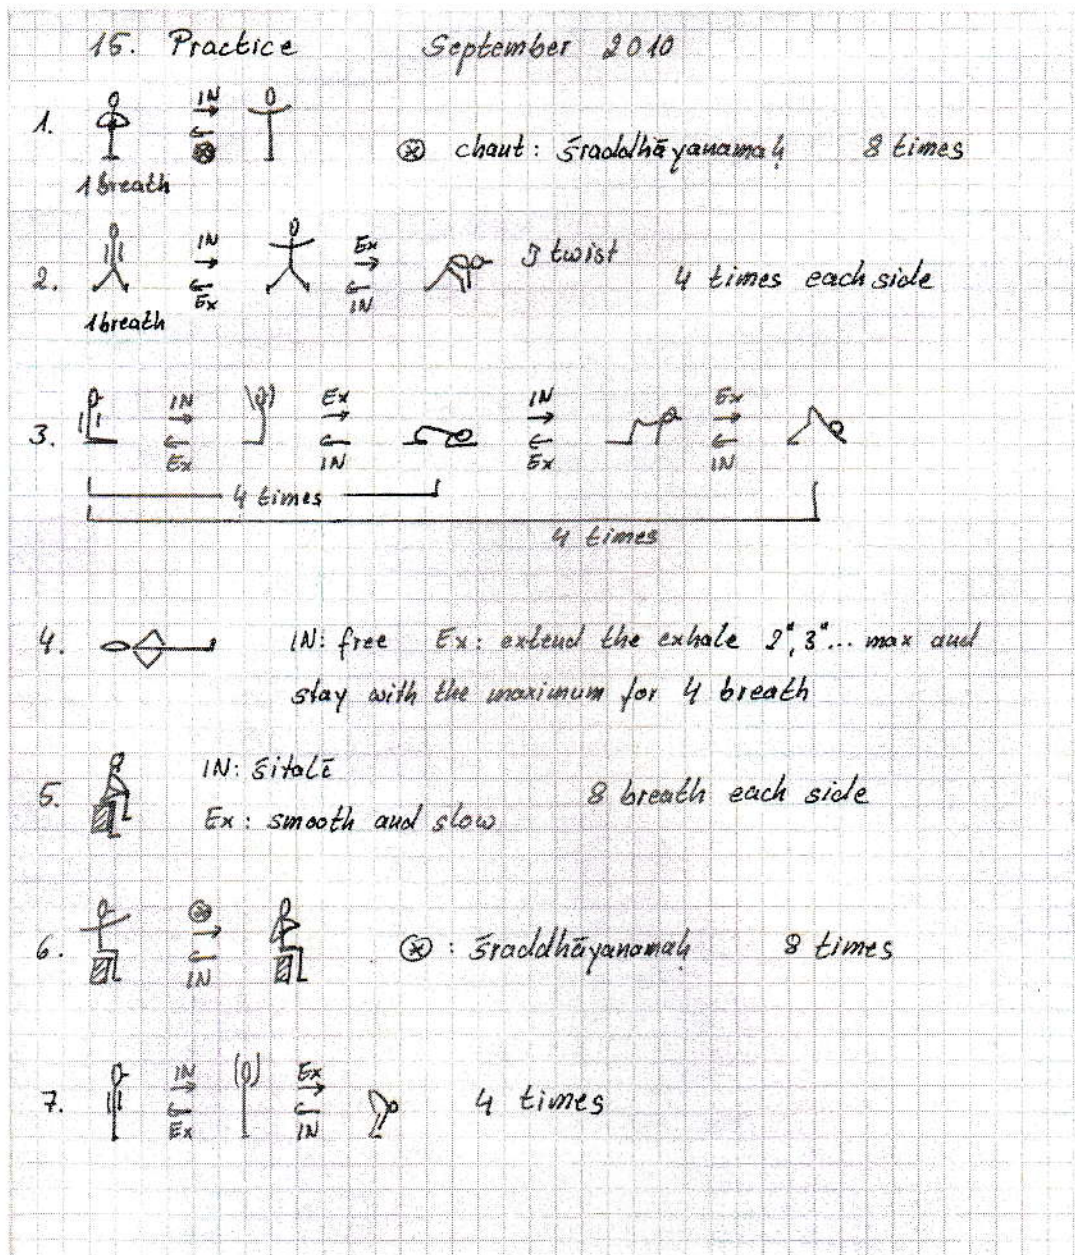 15. Practice September 2010
1. IN ⊗ ⊗ chant: śraddhāyanamaḥ 8 times
1 breath
2. IN Ex Ex IN twist 4 times each side
1 breath
3. IN Ex Ex IN IN Ex Ex IN
4 times
4 times
4. IN: free Ex: extend the exhale 2", 3"... max and
stay with the maximum for 4 breath
5. IN: śitalī 8 breath each side
Ex: smooth and slow
6. ⊗ IN ⊗ : śraddhāyanamaḥ 8 times
7. IN Ex Ex IN 4 times